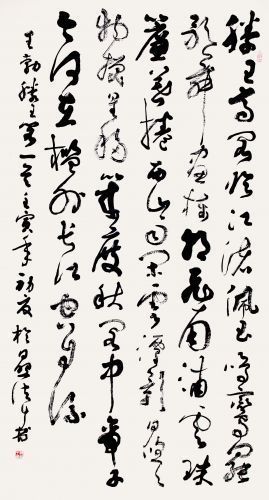 滕王高阁临江渚佩玉鸣鸾罷
歌舞画棟朝飞南浦云珠
簾暮捲西山雨闲云潭影日悠悠
物换星移幾度秋阁中帝子
今何在槛外长江空自流
王勃滕王阁一首壬寅年初夏於书